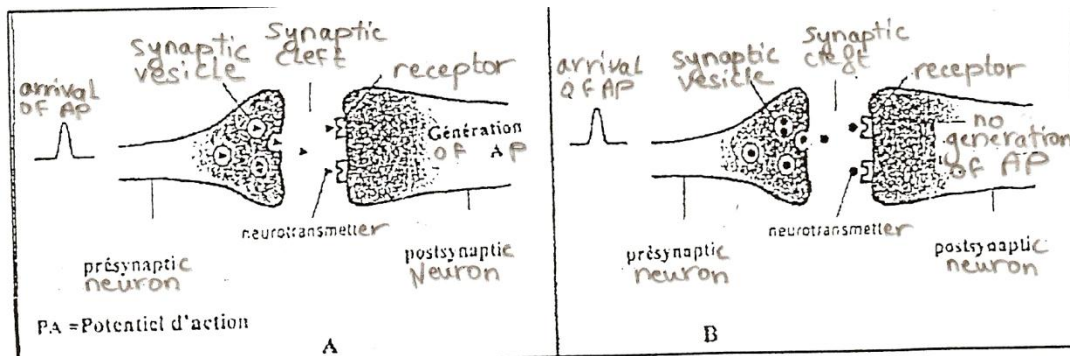 synaptic
vesicle
synaptic
cleft
receptor
arrival
OF AP
Génération
OF AP
neurotransmetter
présynaptic
neuron
postsynaptic
Neuron
PA = Potentiel d'action
A
synaptic
vesicle
synaptic
cleft
receptor
arrival
OF AP
no
generation
OF AP
neurotransmetter
présynaptic
neuron
postsynaptic
neuron
B